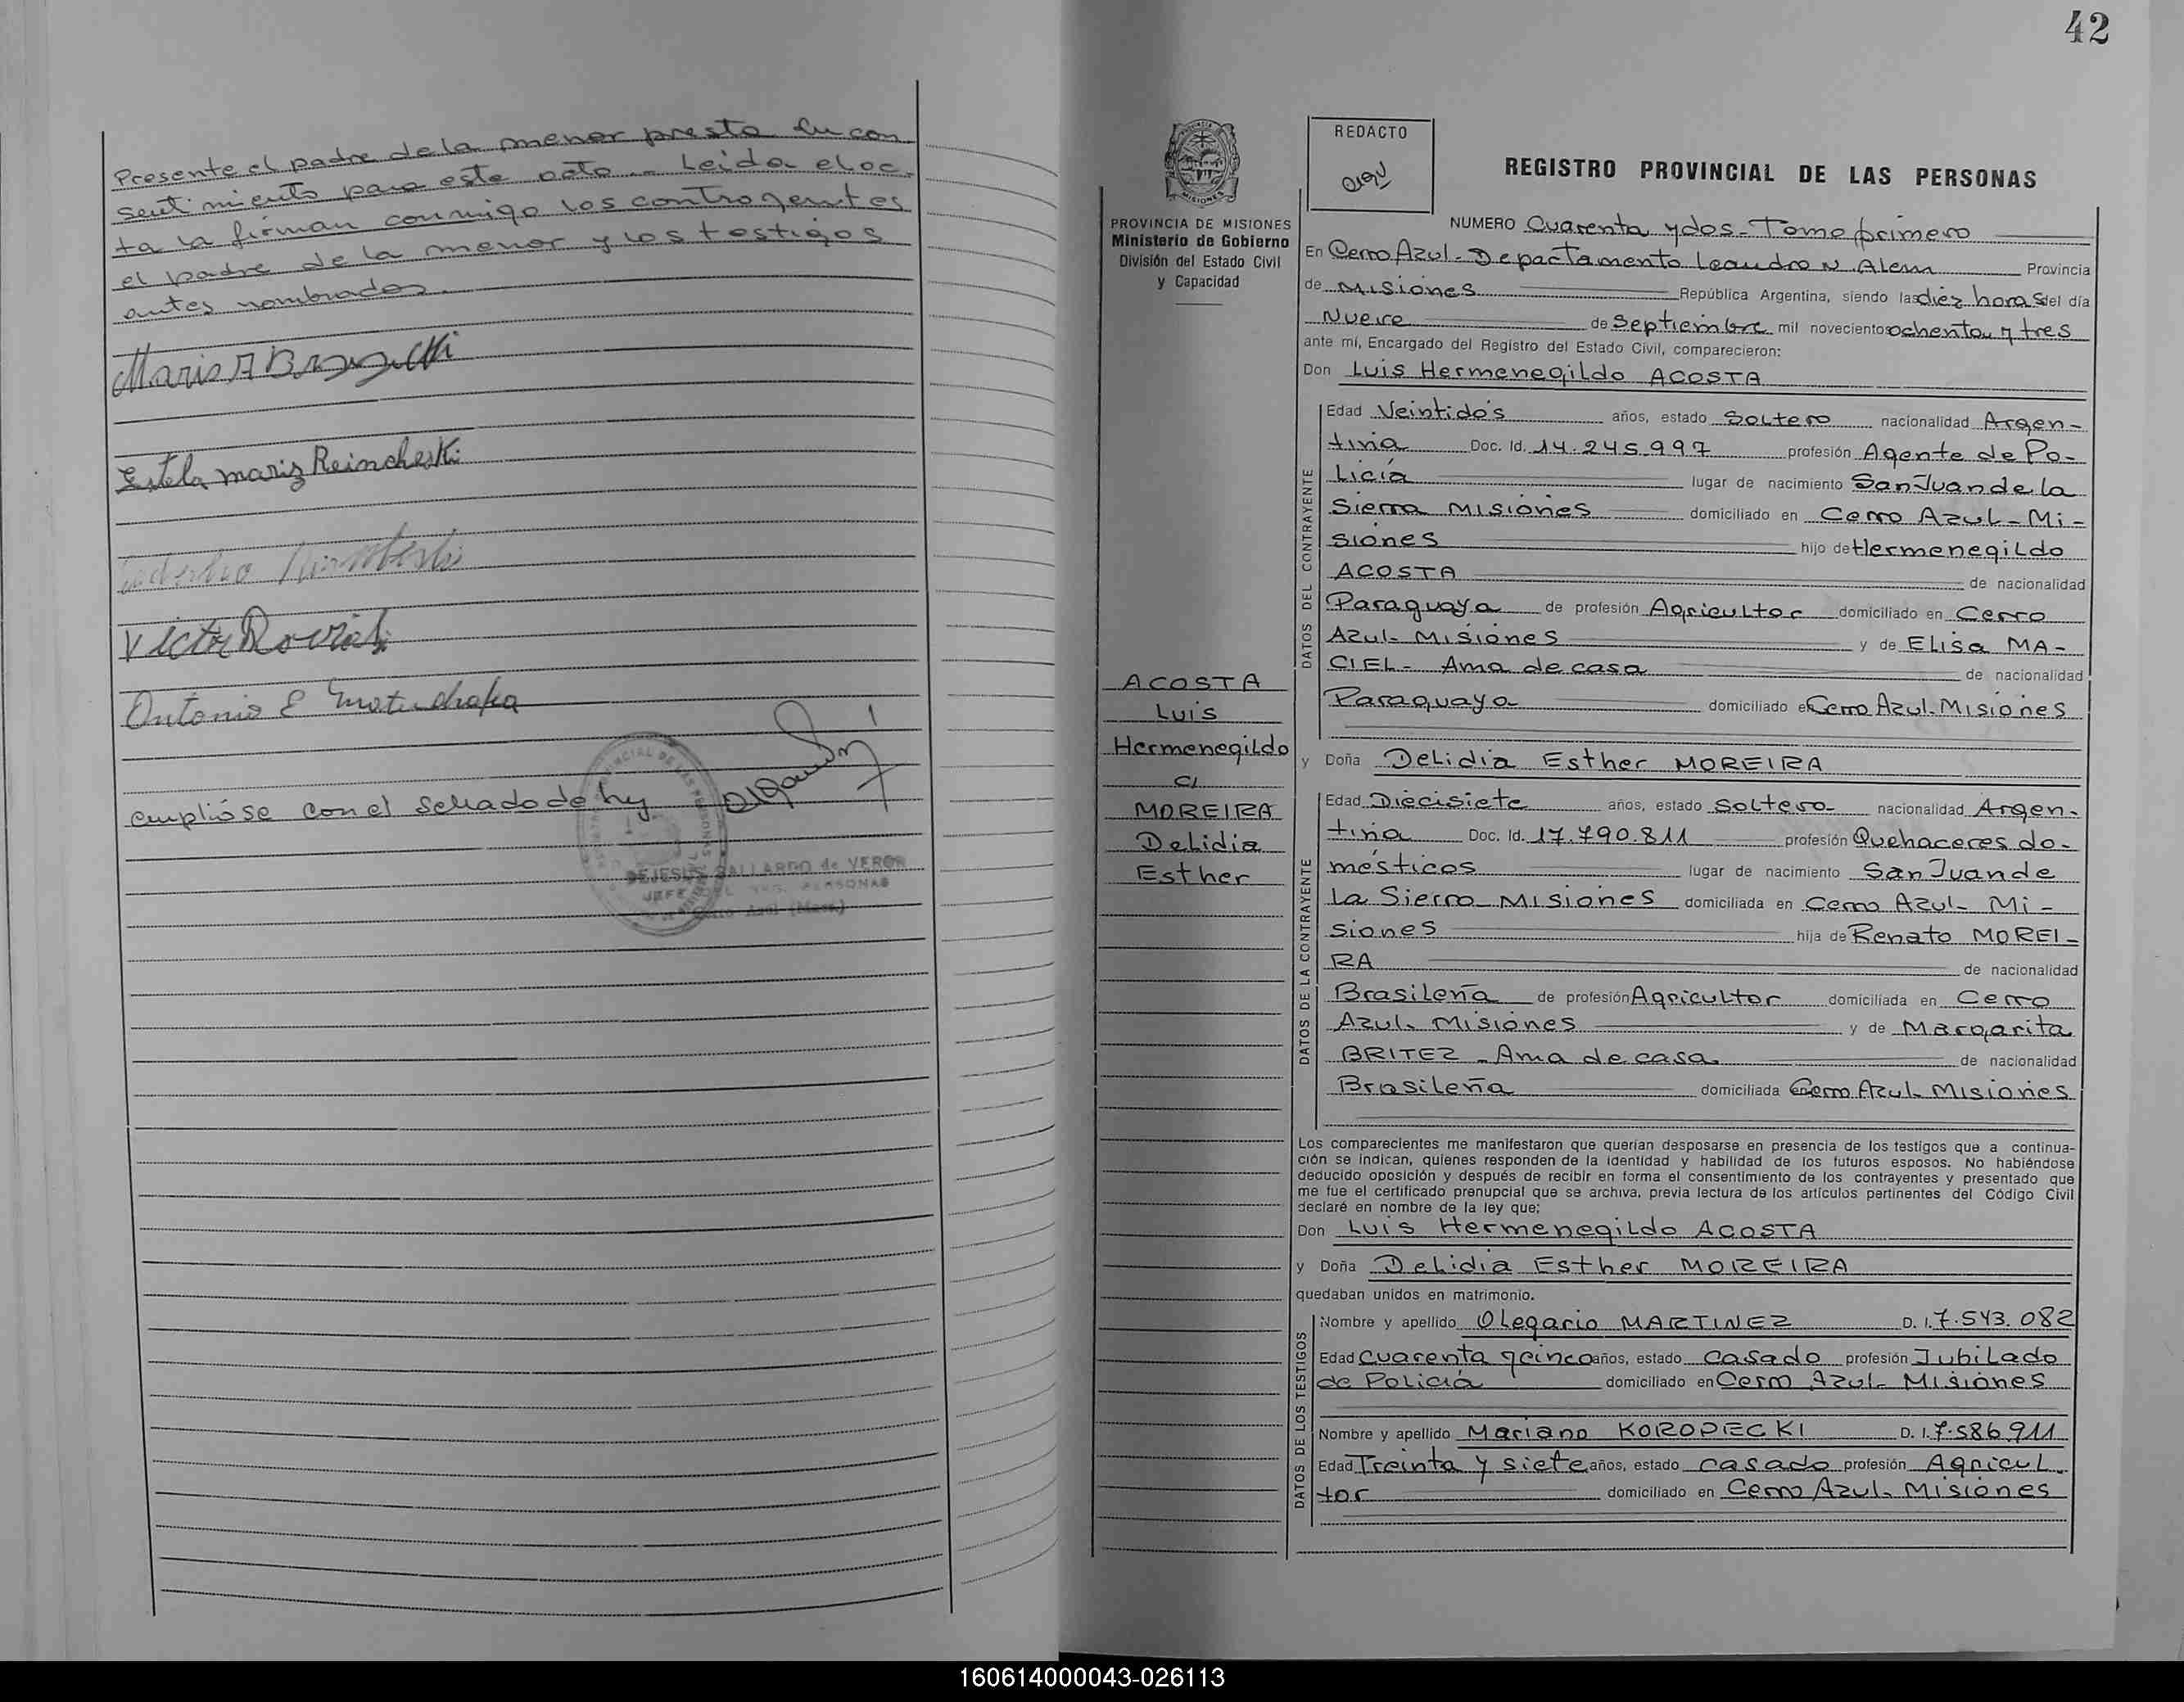 Presente el padre de la menor presta su con
sentimiento para este acto.- Leida el ac-
ta la firman conmigo los contrayentes
el padre de la menor y los testigos
antes nombrados.
Estela mariz Reincheski
Victor
Antonio E
Cumplióse con el sellado de ley
DEJESUS GALLARDO de VERON
JEFE
42
PROVINCIA DE MISIONES
Ministerio de Gobierno
División del Estado Civil
y Capacidad
ACOSTA
Luis
Hermenegildo
c/
MOREIRA
Delidia
Esther
REDACTO
REGISTRO PROVINCIAL DE LAS PERSONAS
NUMERO Cuarenta y dos- Tomo primero
En Cerro Azul- Departamento Leandro N. Alem Provincia
de Misiones República Argentina, siendo las diez horas del día
Nueve de Septiembre mil novecientos ochenta y tres
ante mí, Encargado del Registro del Estado Civil, comparecieron:
Don Luis Hermenegildo ACOSTA
DATOS DEL CONTRAYENTE
Edad Veintidós años, estado Soltero nacionalidad Argen-
tina Doc. Id. 14.245.997 profesión Agente de Po-
licía lugar de nacimiento San Juan de la
Sierra Misiones domiciliado en Cerro Azul- Mi-
siones hijo de Hermenegildo
ACOSTA de nacionalidad
Paraguaya de profesión Agricultor domiciliado en Cerro
Azul- Misiones y de Elisa MA-
CIEL- Ama de casa de nacionalidad
Paraguaya domiciliado e Cerro Azul- Misiones
y Doña Delidia Esther MOREIRA
DATOS DE LA CONTRAYENTE
Edad Diecisiete años, estado Soltera- nacionalidad Argen-
tina Doc. Id. 17.790.811 profesión Quehaceres do-
mésticos lugar de nacimiento San Juan de
la Sierra Misiones domiciliada en Cerro Azul- Mi-
siones hija de Renato MOREI-
RA de nacionalidad
Brasileña de profesión Agricultor domiciliada en Cerro
Azul- Misiones y de Margarita
BRITEZ - Ama de casa de nacionalidad
Brasileña domiciliada en Cerro Azul- Misiones
Los comparecientes me manifestaron que querían desposarse en presencia de los testigos que a continua-
ción se indican, quienes responden de la identidad y habilidad de los futuros esposos. No habiéndose
deducido oposición y después de recibir en forma el consentimiento de los contrayentes y presentado que
me fue el certificado prenupcial que se archiva, previa lectura de los artículos pertinentes del Código Civil
declaré en nombre de la ley que:
Don Luis Hermenegildo ACOSTA
y Doña Delidia Esther MOREIRA
quedaban unidos en matrimonio.
DATOS DE LOS TESTIGOS
Nombre y apellido Olegario MARTINEZ D. I. 7.543.082
Edad Cuarenta y cinco años, estado casado profesión Jubilado
de Policía domiciliado en Cerro Azul- Misiones
Nombre y apellido Mariano KOROPIECKI D. I. 7.586.911
Edad Treinta y siete años, estado casado profesión Agricul-
tor domiciliado en Cerro Azul- Misiones
160614000043-026113